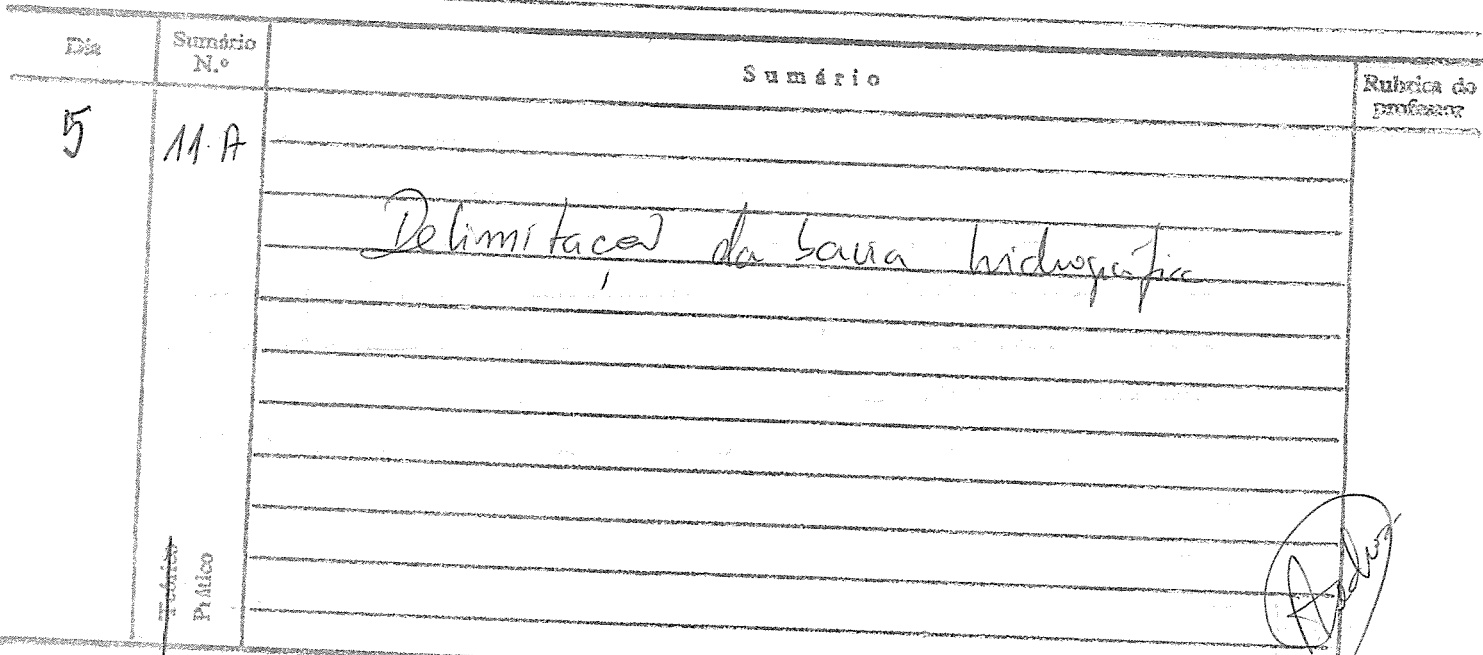 Dia
Sumário N.º
Sumário
Rubrica do professor
5
11. A
Delimitação da bacia hidrográfica
Teórico
Prático